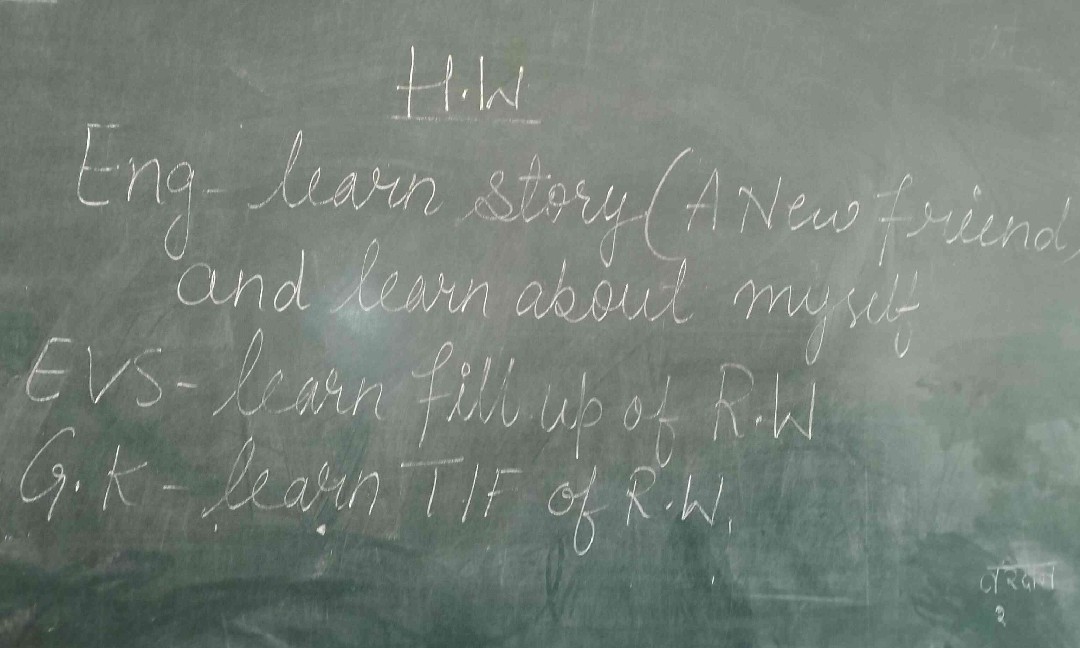 H.W
Eng- learn story (A New friend)
and learn about myself
EVS- learn fill up of R.W
G.K - learn T/F of R.W.
२